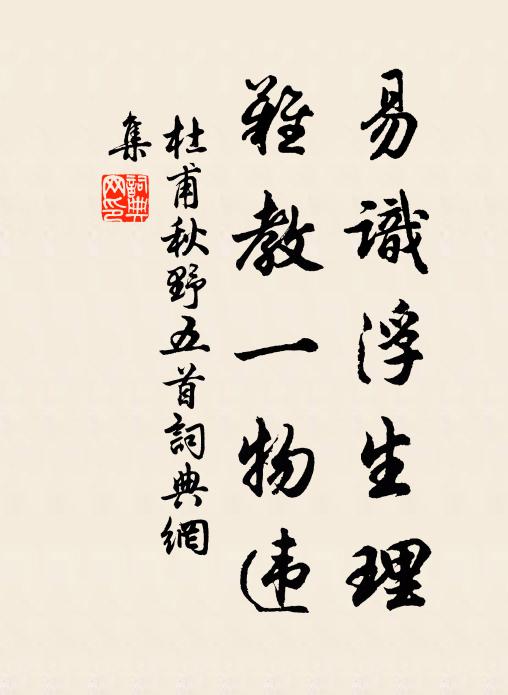 易識浮生理
難教一物违
杜甫秋野五首詞典網
集
詞典
网印